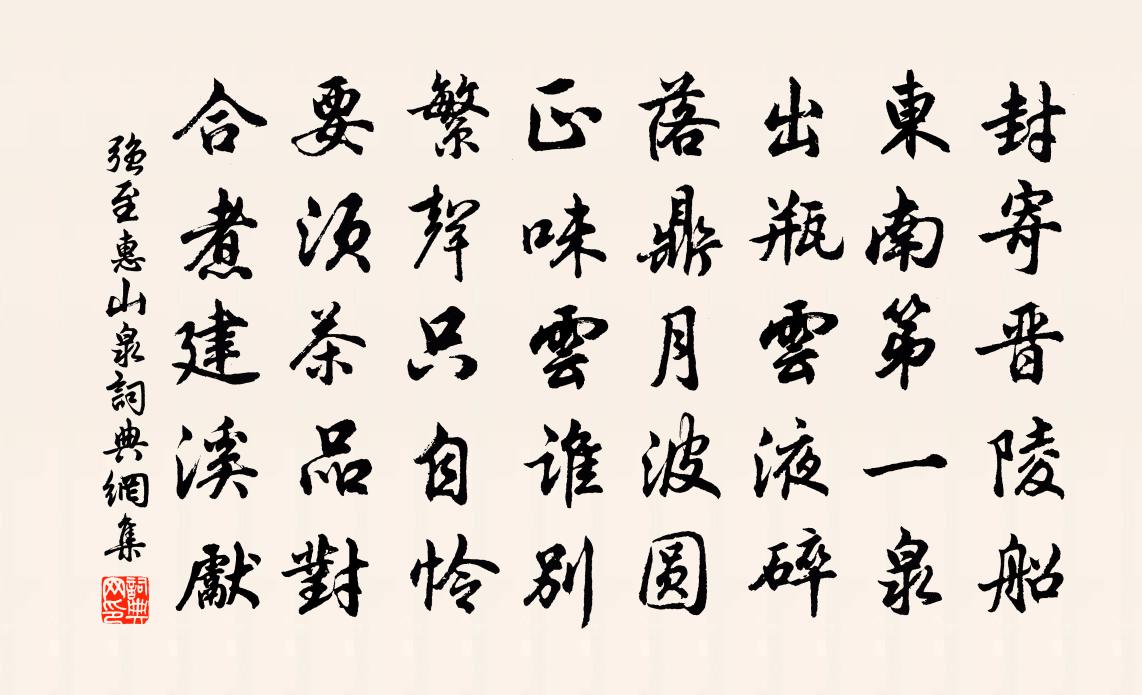 封寄晋陵船
東南第一泉
出瓶雲液碎
落鼎月波圆
正味雲誰别
繁聲只自怜
要須茶品對
合煮建溪獻
強至惠山泉詞典網集
詞典網印